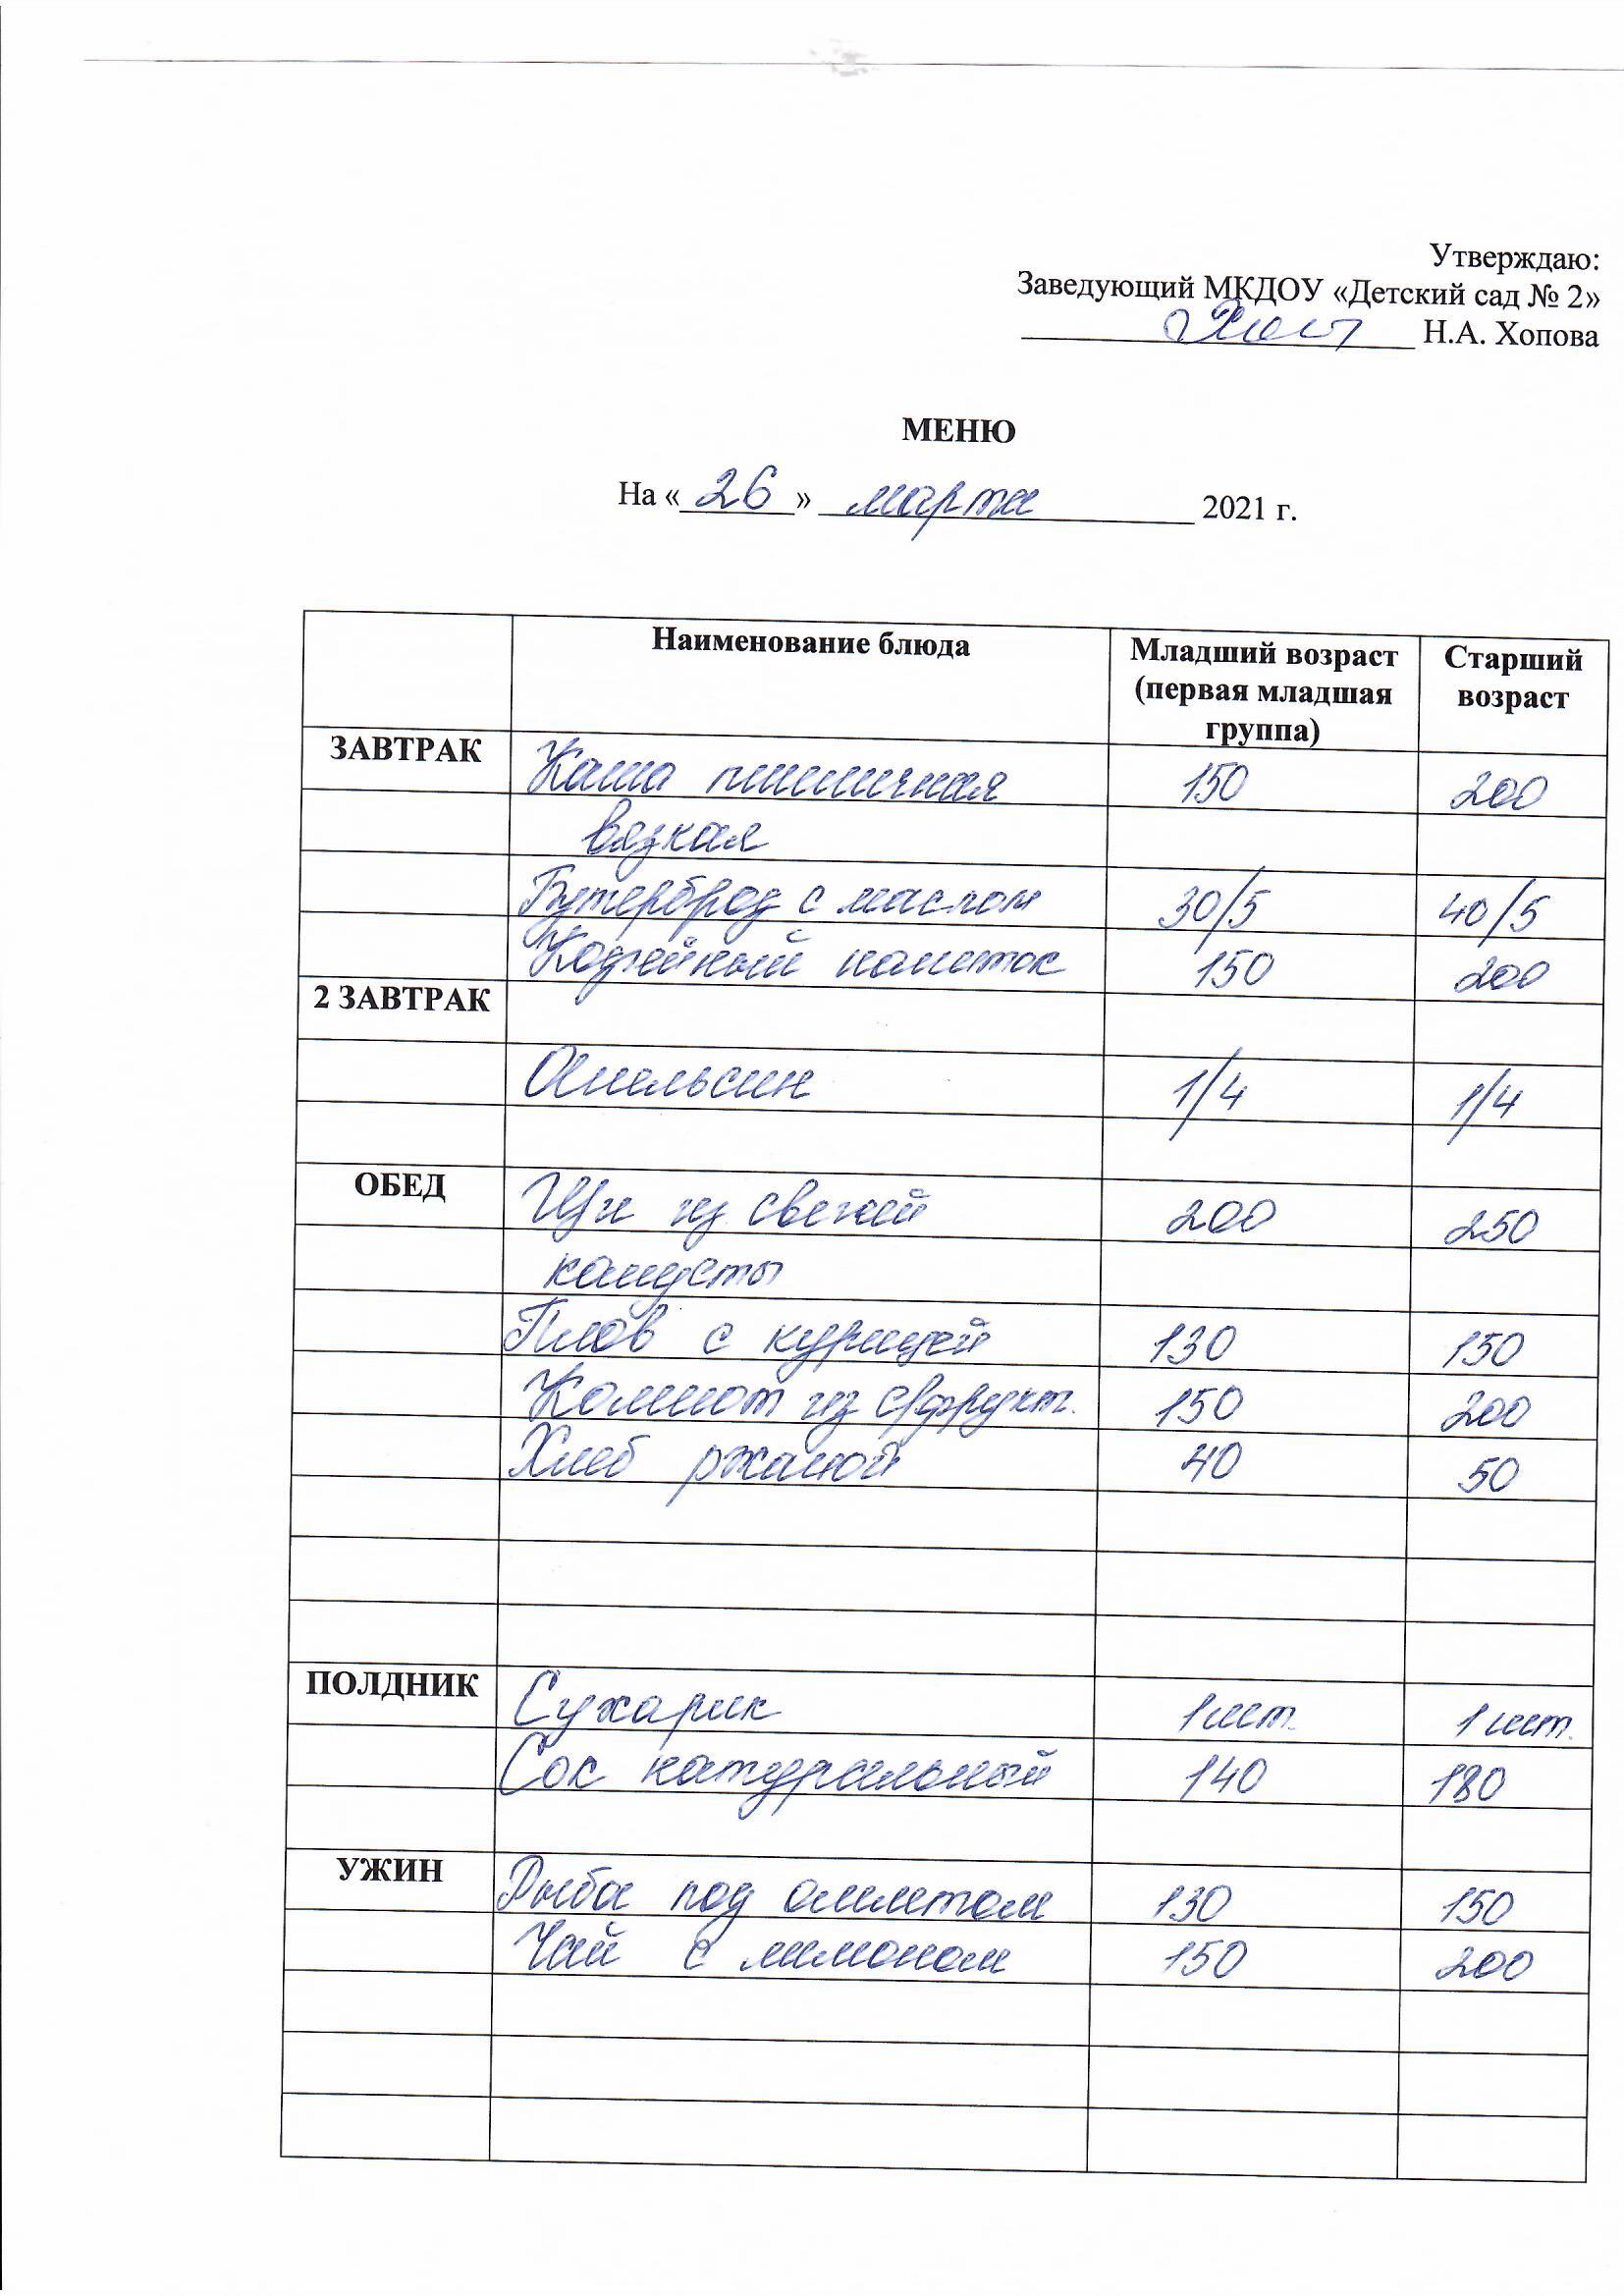 Утверждаю:
Заведующий МКДОУ «Детский сад № 2»
Н.А. Хопова
МЕНЮ
На « 26 » марта 2021 г.
Наименование блюда Младший возраст (первая младшая группа) Старший возраст
ЗАВТРАК Каша пшеничная 150 200
вязкая
Бутерброд с маслом 30/5 40/5
Кофейный напиток 150 200
2 ЗАВТРАК
Апельсин 1/4 1/4
ОБЕД Щи из свежей 200 250
капусты
Плов с курицей 130 150
Компот из с/фрукт. 150 200
Хлеб ржаной 40 50
ПОЛДНИК Сухарик 1 шт. 1 шт.
Сок натуральный 140 180
УЖИН Рыба под омлетом 130 150
Чай с лимоном 150 200